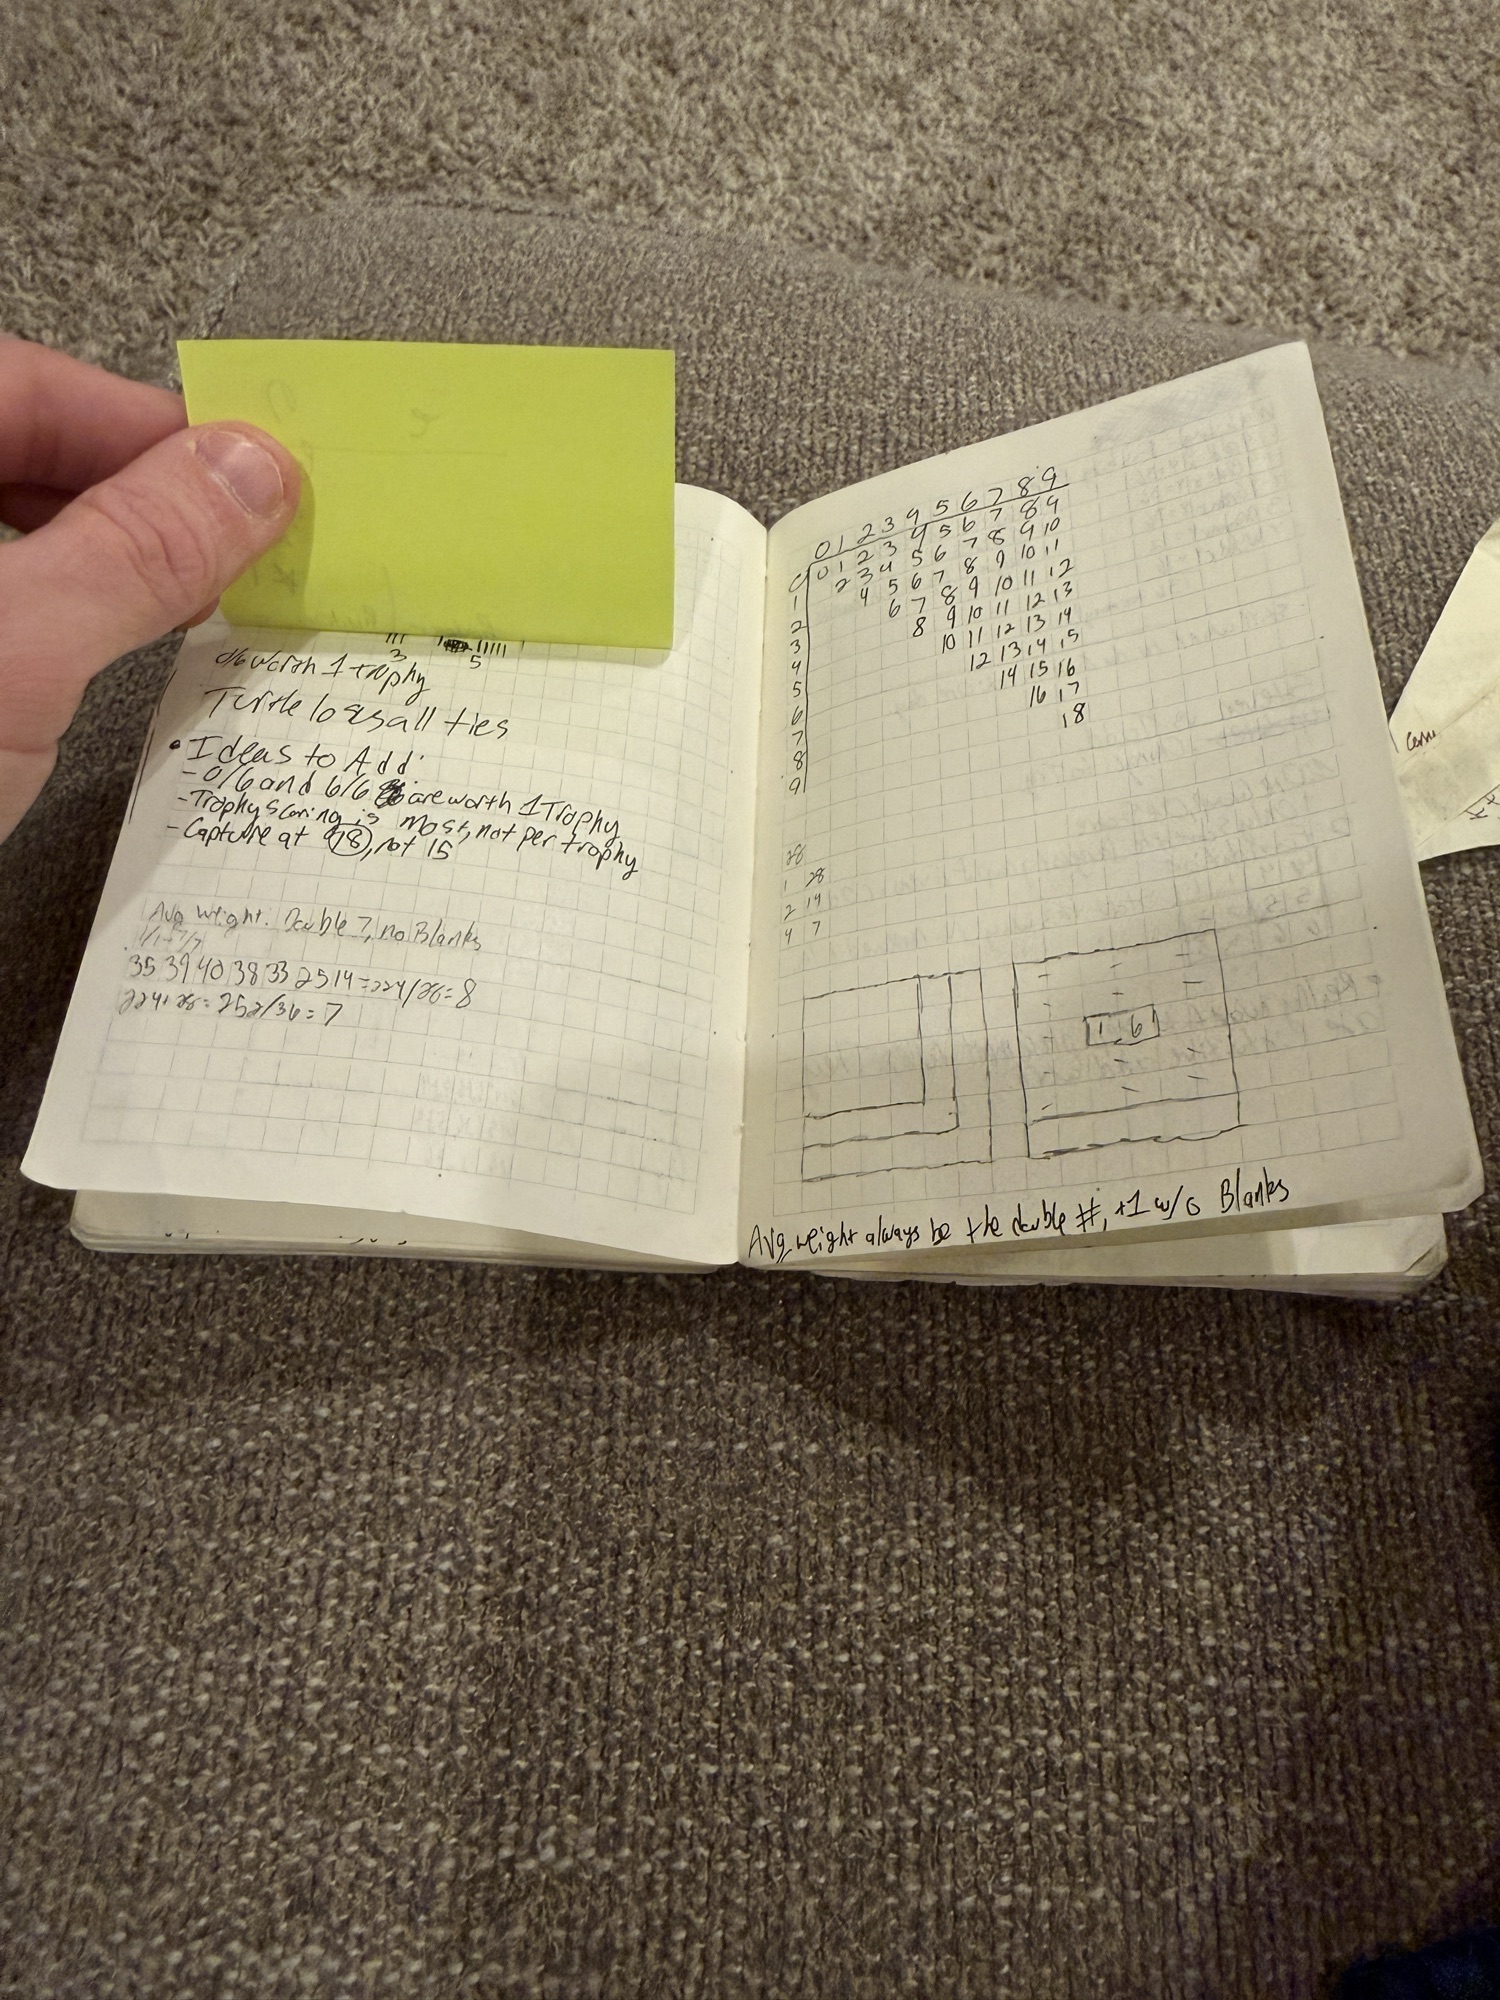 3 5
0/6 worth 1 trophy
Turtle loses all ties
• Ideas to Add:
- 0/6 and 6/6 are worth 1 Trophy
- Trophy scoring is most, not per trophy
- Capture at 18, not 15
Avg weight: Double 7, no Blanks
1/1-7/7
35 39 40 38 33 25 14 = 224/28 = 8
224+28 = 252/36 = 7
0 1 2 3 4 5 6 7 8 9
0 0 1 2 3 4 5 6 7 8 9
1 2 3 4 5 6 7 8 9 10
2 4 5 6 7 8 9 10 11
3 6 7 8 9 10 11 12
4 8 9 10 11 12 13
5 10 11 12 13 14
6 12 13 14 15
7 14 15 16
8 16 17
9 18
28
1 28
2 14
4 7
1 6
Avg weight always be the double #, +1 w/o Blanks